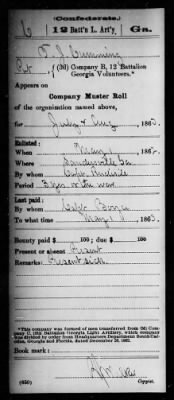 (Confederate.)
6 12 Batt'n L. Art'y. Ga.
T. J. Cumming
Pvt, (2d) Company B, 12 Battalion
Georgia Volunteers.*
Appears on
Company Muster Roll
of the organization named above,
for July & Aug, 1863.
Enlisted:
When May, 1862.
Where Sandersville Ga.
By whom Capt.
Period 3 yrs or the war
Last paid:
By whom Capt
To what time May 1, 1863.
Bounty paid $ 100; due $ 100
Present or absent Present
Remarks: Present sick
*This company was formed of men transferred from (2d) Company C, 12th Battalion Georgia Light Artillery, which company was divided by order from Headquarters Department South Carolina, Georgia and Florida, dated December 30, 1862.
Book mark:
(650) Copyist.